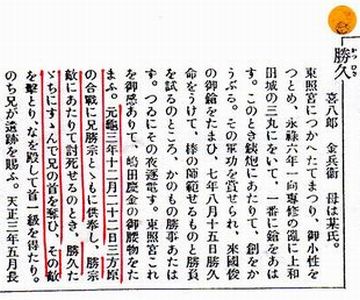 勝久
かつひさ
喜八郎 金兵衞 母は某氏。
東照宮につかへたてまつり、御小性を
つとめ、永祿六年一向專修の亂に上和
田城の三丸にをいて、一番に鎗をあは
す。このとき銃炮にあたりて、創をか
うぶる。その軍功を賞せられ、來國俊
の御鎗をたまひ、七年八月十五日勝久
命をうけて、棒の師範せるものと勝負
を試るのところ、かのもの勝事あたは
す。つゐにその夜逐電す。東照宮これ
を御感ありて、嶋田慶金の御腰物をた
まふ。元龜三年十二月二十二日三方原
の合戰に兄勝宗とゝもに供奉し、勝宗
敵にあたりて討死せるのとき、勝久た
ゞちにすゝんで兄の首を奪ひ、その敵
を擊とり、なを殿して首一級を得たり。
のち兄が遺跡を賜ふ。天正三年五月長